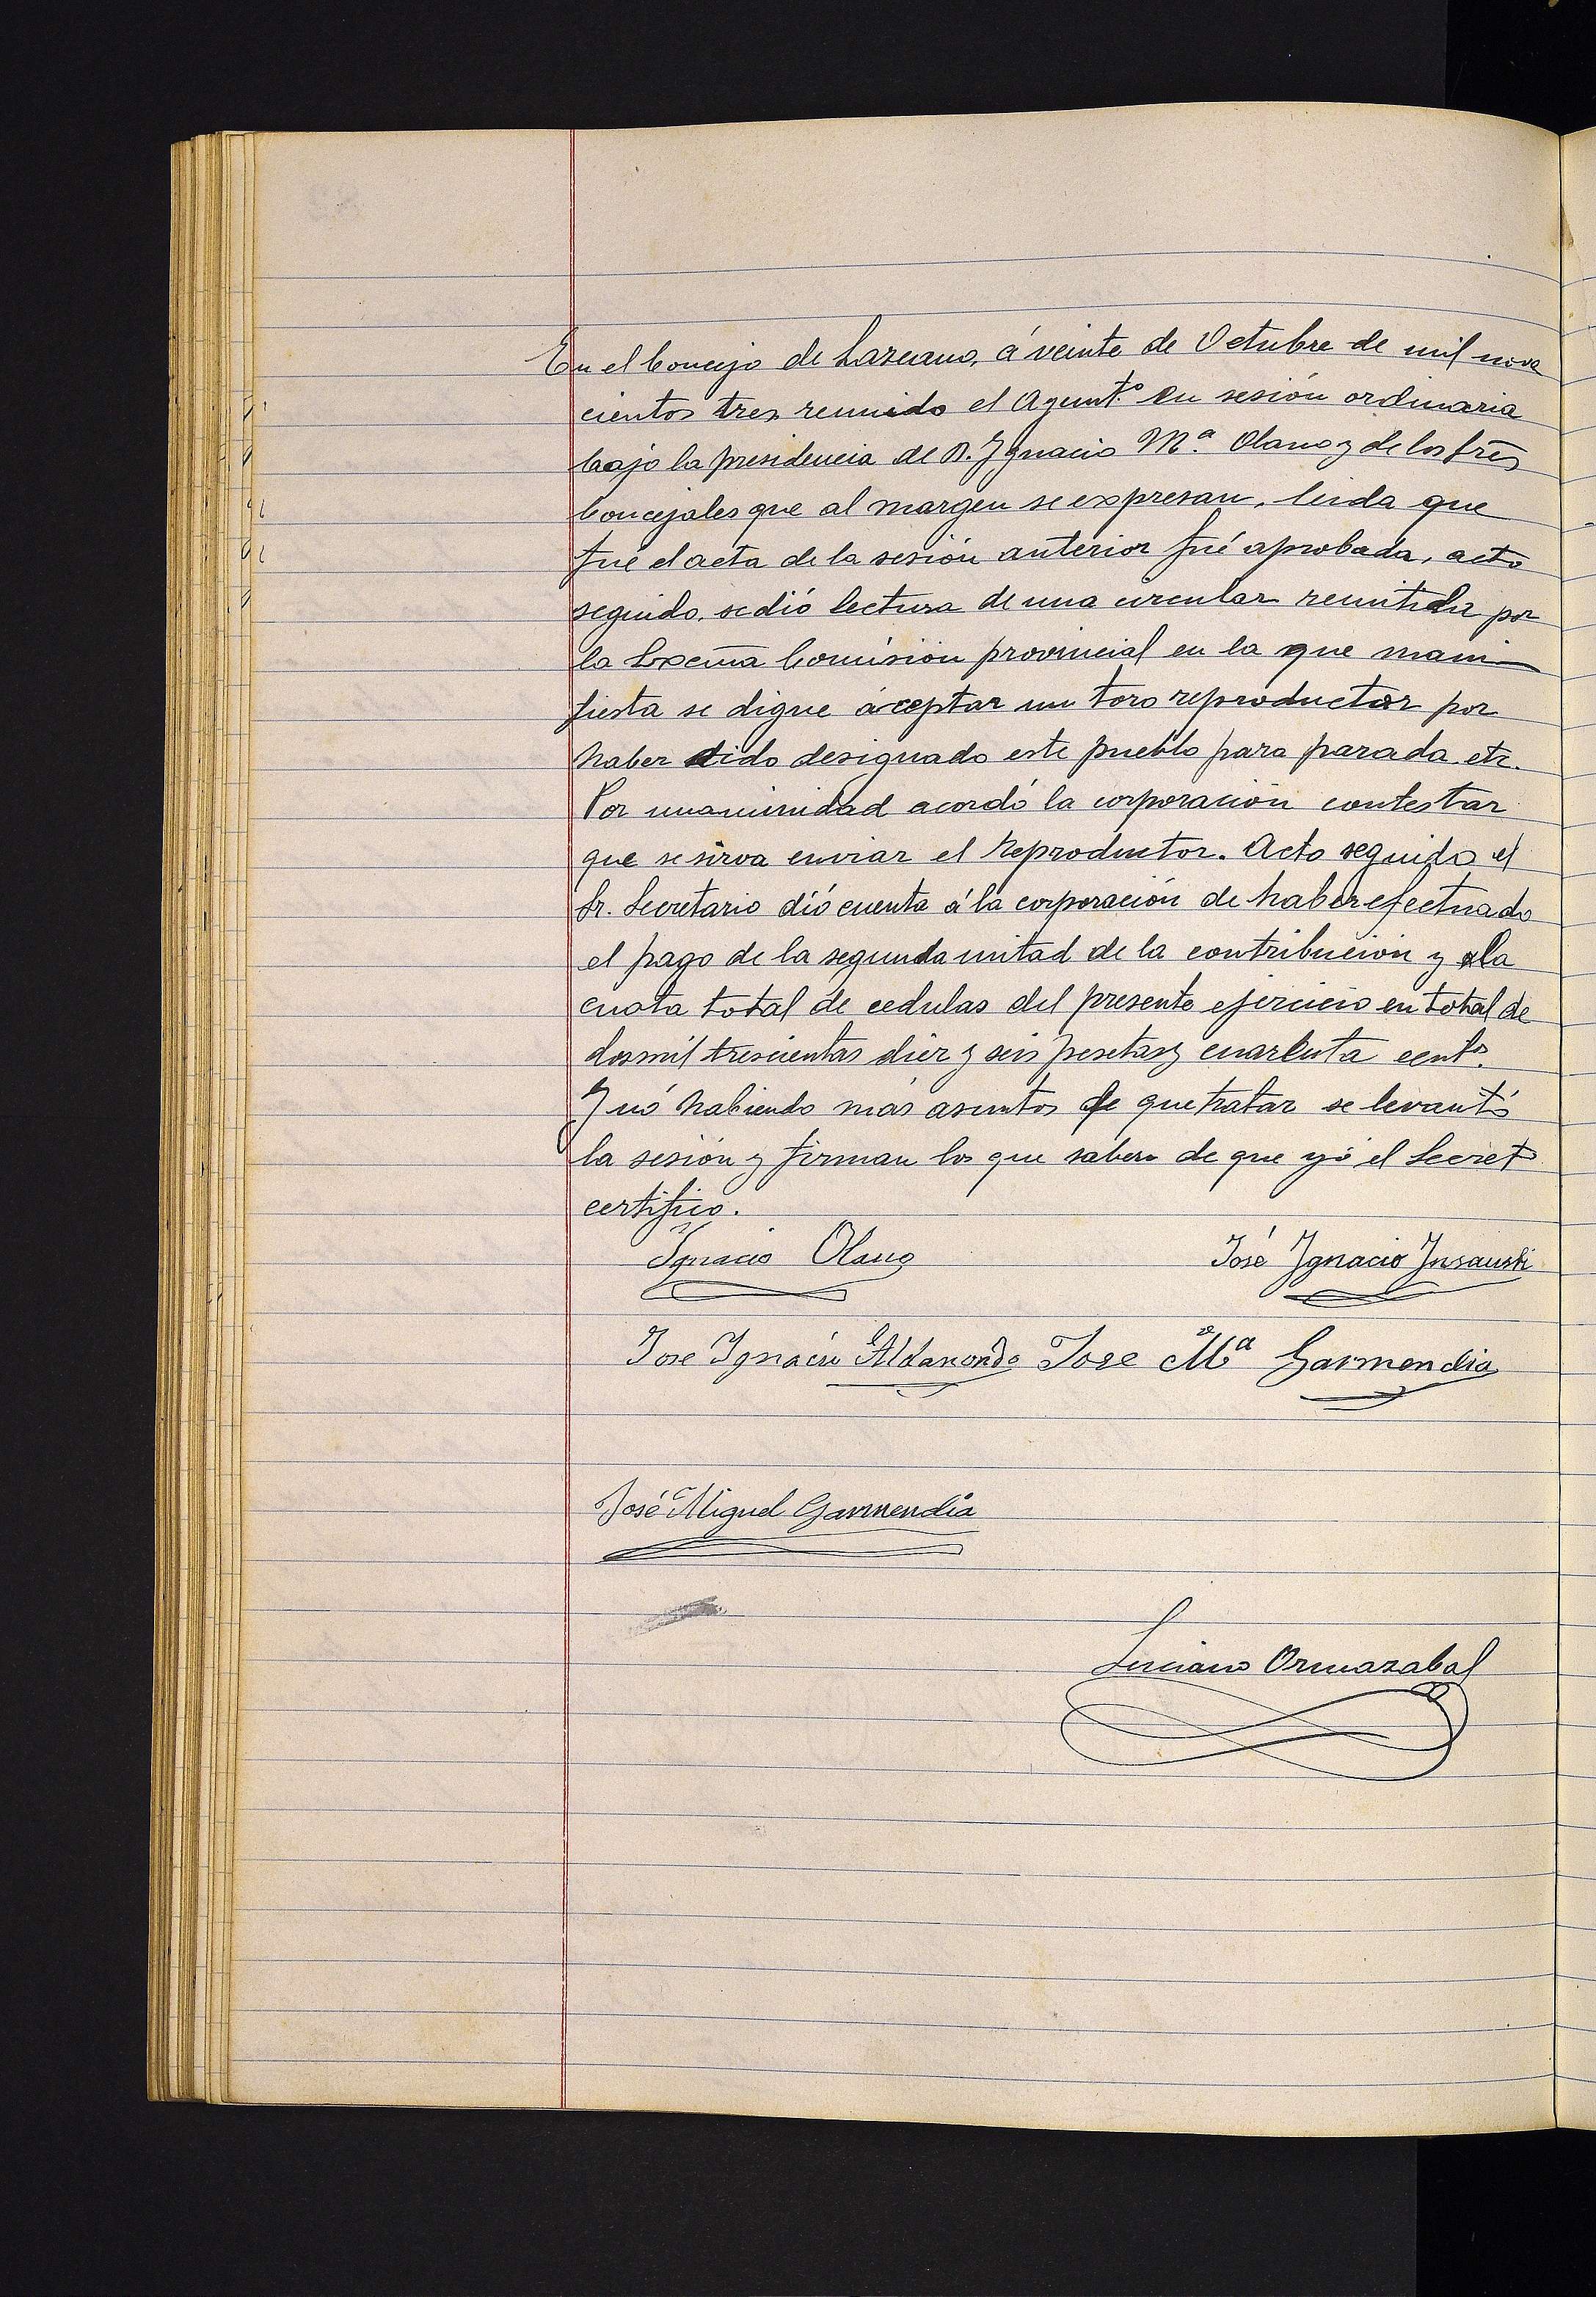 En el Concejo de Lazcano, á veinte de Octubre de mil nove
cientos tres, reunido el Ayunt.º en sesión ordinaria
bajo la presidencia de D. Ygnacio Mª. Olano y de los Sres
Concejales que al margen se expresan, leida que
fué el acta de la sesión anterior fué aprobada, acto
seguido, se dió lectura de una circular remitida por
la Excma Comisión provincial en la que mani
fiesta se digne áceptar un toro reproductor por
haber sido designado este pueblo para parada etc.
Por unanimidad acordó la corporación contestar
que se sirva enviar el reproductor. Acto seguido el
Sr. Secretario dió cuenta á la corporación de haber efectuado
el pago de la segunda mitad de la contribución y la
cuota total de cedulas del presente ejercicio en total de
dos mil trescientas diez y seis pesetas y cuarenta cents.
Y nó habiendo más asuntos de que tratar se levantó
la sesión y firman los que saben de que yó el Secret
certifico.
Ygnacio Olano José Ygnacio Insausti
Jose Ygnacio Aldanondo Jose Mª Garmendia
José Miguel Garmendia
Luciano Ormazabal